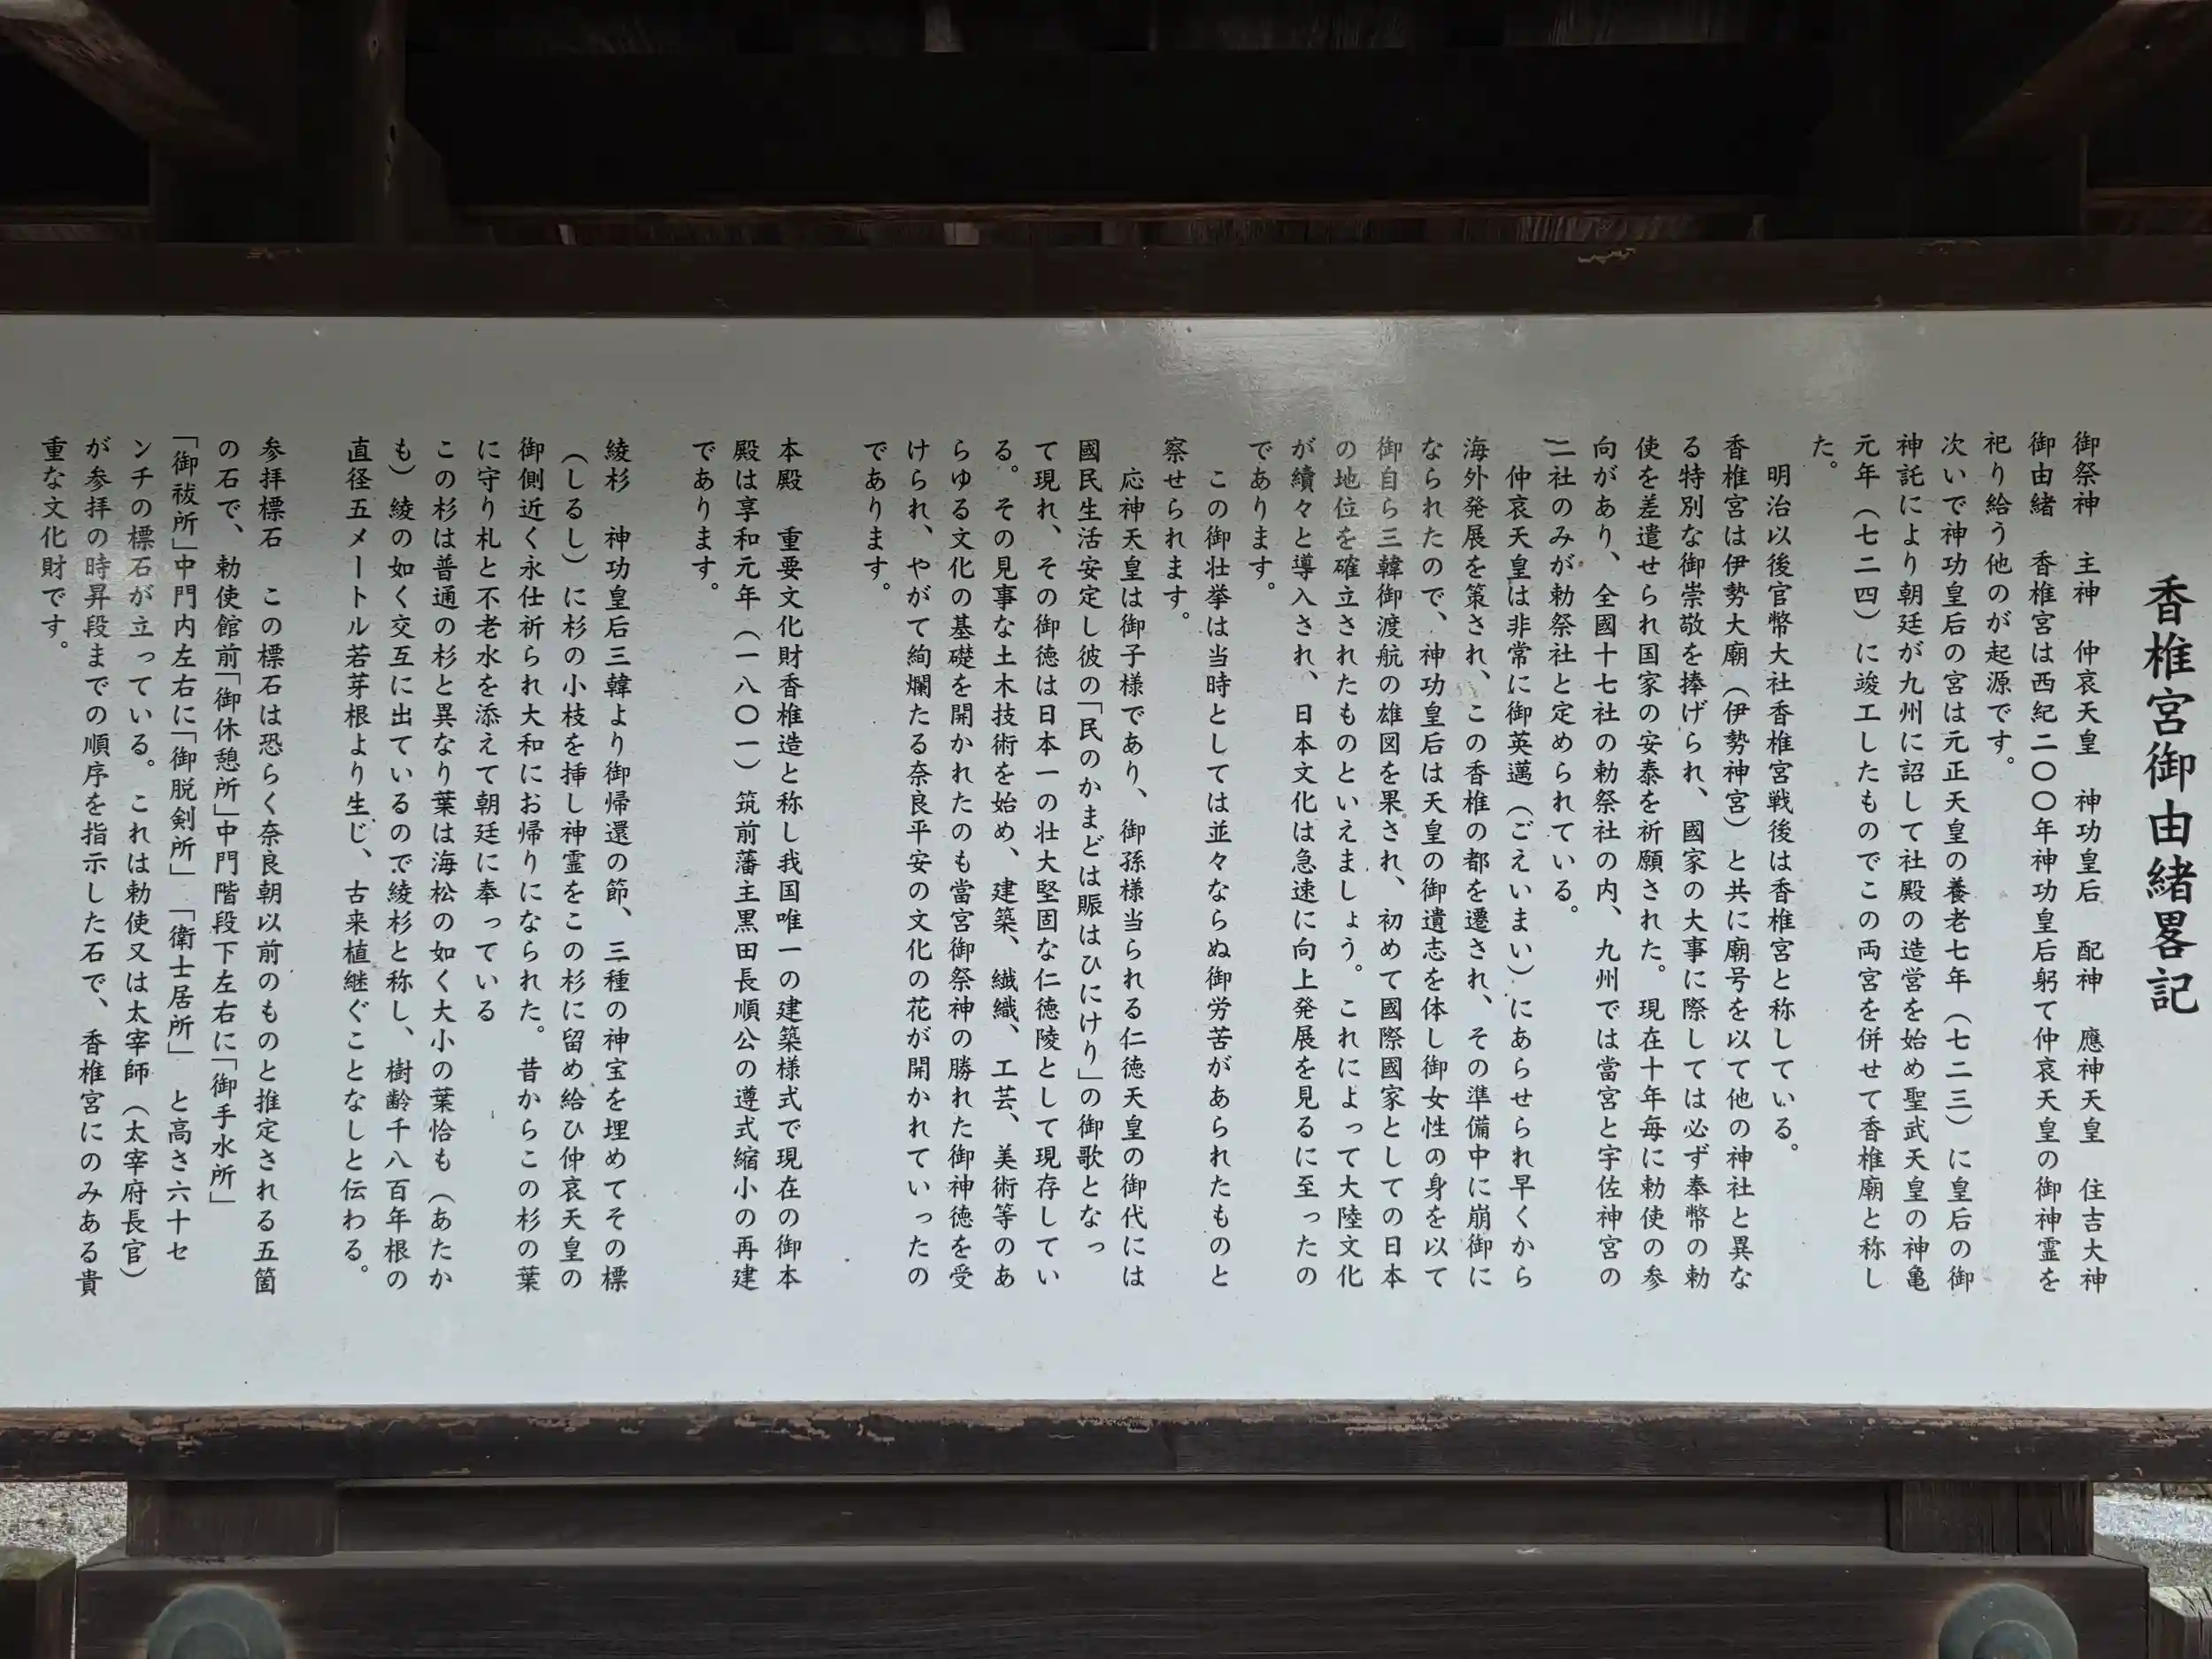 香椎宮御由緒畧記
御祭神　主神　仲哀天皇　神功皇后　配神　應神天皇　住吉大神
御由緒　香椎宮は西紀二〇〇年神功皇后躬て仲哀天皇の御神霊を
祀り給う他のが起源です。
次いで神功皇后の宮は元正天皇の養老七年（七二三）に皇后の御
神託により朝廷が九州に詔して社殿の造営を始め聖武天皇の神亀
元年（七二四）に竣工したものでこの両宮を併せて香椎廟と称し
た。
明治以後官幣大社香椎宮戦後は香椎宮と称している。
香椎宮は伊勢大廟（伊勢神宮）と共に廟号を以て他の神社と異な
る特別な御崇敬を捧げられ、國家の大事に際しては必ず奉幣の勅
使を差遣せられ国家の安泰を祈願された。現在十年毎に勅使の参
向があり、全國十七社の勅祭社の内、九州では當宮と宇佐神宮の
二社のみが勅祭社と定められている。
仲哀天皇は非常に御英邁（ごえいまい）にあらせられ早くから
海外発展を策され、この香椎の都を遷され、その準備中に崩御に
なられたので、神功皇后は天皇の御遺志を体し御女性の身を以て
御自ら三韓御渡航の雄図を果され、初めて國際國家としての日本
の地位を確立されたものといえましょう。これによって大陸文化
が續々と導入され、日本文化は急速に向上発展を見るに至ったの
であります。
この御壮挙は当時としては並々ならぬ御労苦があられたものと
察せられます。
応神天皇は御子様であり、御孫様当られる仁徳天皇の御代には
國民生活安定し彼の「民のかまどは賑はひにけり」の御歌となっ
て現れ、その御徳は日本一の壮大堅固な仁徳陵として現存してい
る。その見事な土木技術を始め、建築、繊織、工芸、美術等のあ
らゆる文化の基礎を開かれたのも當宮御祭神の勝れた御神徳を受
けられ、やがて絢爛たる奈良平安の文化の花が開かれていったの
であります。
本殿　重要文化財香椎造と称し我国唯一の建築様式で現在の御本
殿は享和元年（一八〇一）筑前藩主黒田長順公の遵式縮小の再建
であります。
綾杉　神功皇后三韓より御帰還の節、三種の神宝を埋めてその標
（しるし）に杉の小枝を挿し神霊をこの杉に留め給ひ仲哀天皇の
御側近く永仕祈られ大和にお帰りになられた。昔からこの杉の葉
に守り札と不老水を添えて朝廷に奉っている
この杉は普通の杉と異なり葉は海松の如く大小の葉恰も（あたか
も）綾の如く交互に出ているので綾杉と称し、樹齢千八百年根の
直径五メートル若芽根より生じ、古来植継ぐことなしと伝わる。
参拝標石　この標石は恐らく奈良朝以前のものと推定される五箇
の石で、勅使館前「御休憩所」中門階段下左右に「御手水所」
「御祓所」中門内左右に「御脱剣所」「衛士居所」と高さ六十セ
ンチの標石が立っている。これは勅使又は太宰師（太宰府長官）
が参拝の時昇段までの順序を指示した石で、香椎宮にのみある貴
重な文化財です。